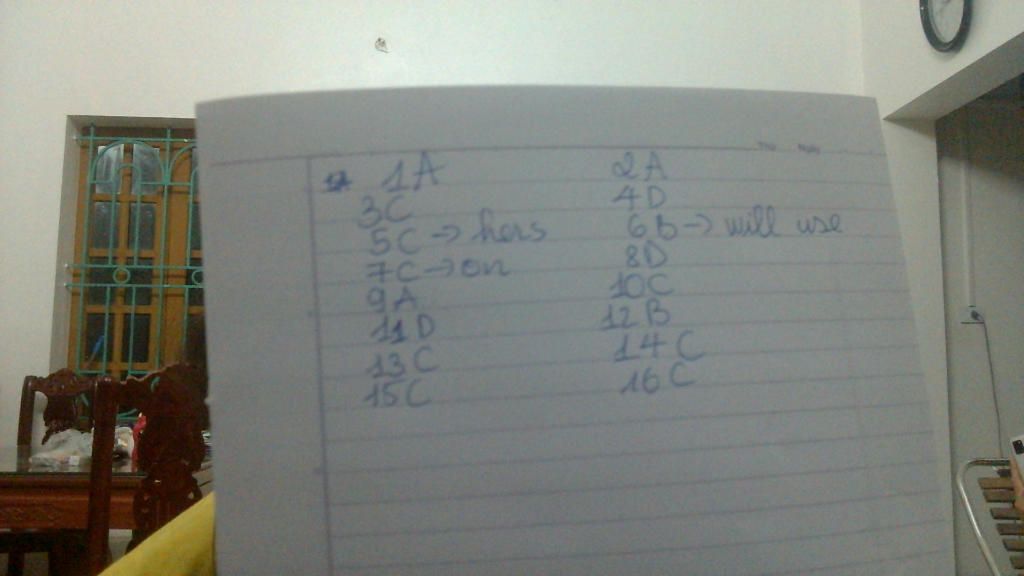 1A 2A
3C 4D
5C → hers 6B → will use
7C → on 8D
9A 10C
11D 12B
13C 14C
15C 16C